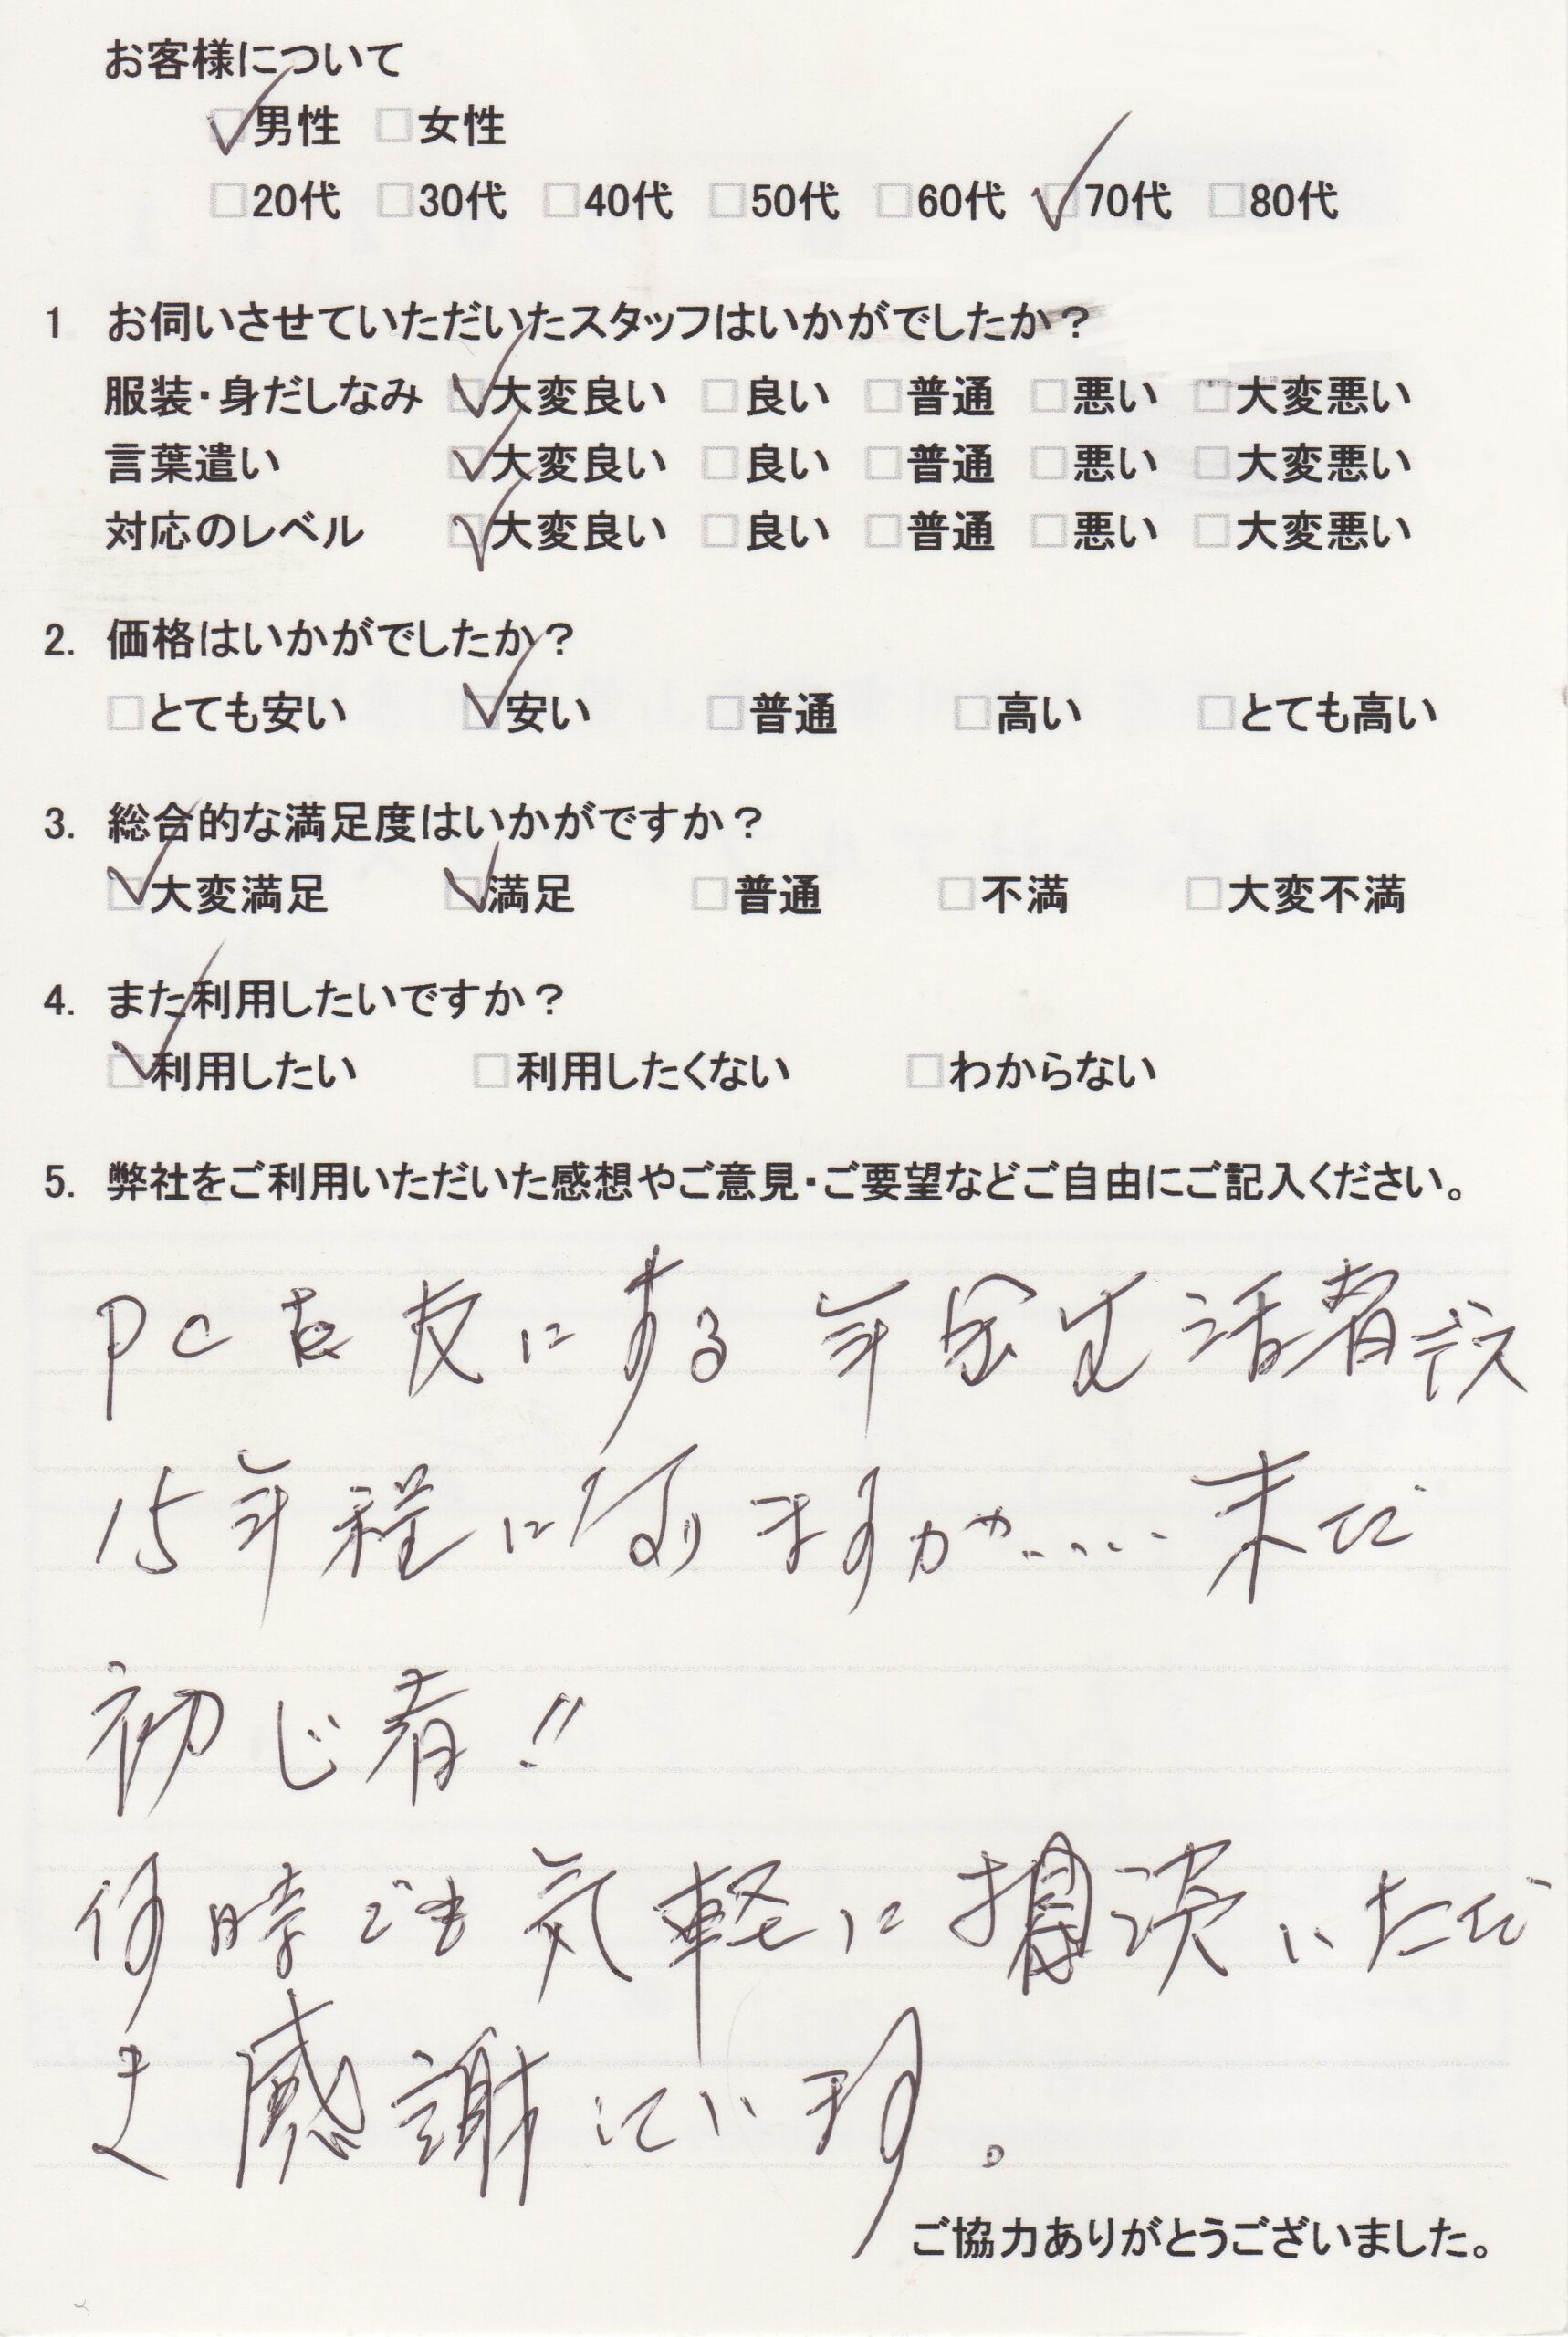 お客様について
☑男性 □女性
□20代 □30代 □40代 □50代 □60代 ☑70代 □80代
1 お伺いさせていただいたスタッフはいかがでしたか？
服装・身だしなみ ☑大変良い □良い □普通 □悪い □大変悪い
言葉遣い ☑大変良い □良い □普通 □悪い □大変悪い
対応のレベル ☑大変良い □良い □普通 □悪い □大変悪い
2. 価格はいかがでしたか？
□とても安い ☑安い □普通 □高い □とても高い
3. 総合的な満足度はいかがですか？
☑大変満足 ☑満足 □普通 □不満 □大変不満
4. また利用したいですか？
☑利用したい □利用したくない □わからない
5. 弊社をご利用いただいた感想やご意見・ご要望などご自由にご記入ください。
PCを友にする年金生活者デス
15年程になりますが.....未だ
初じ者!!
何時でも気軽に相談いただ
き感謝しています。
ご協力ありがとうございました。